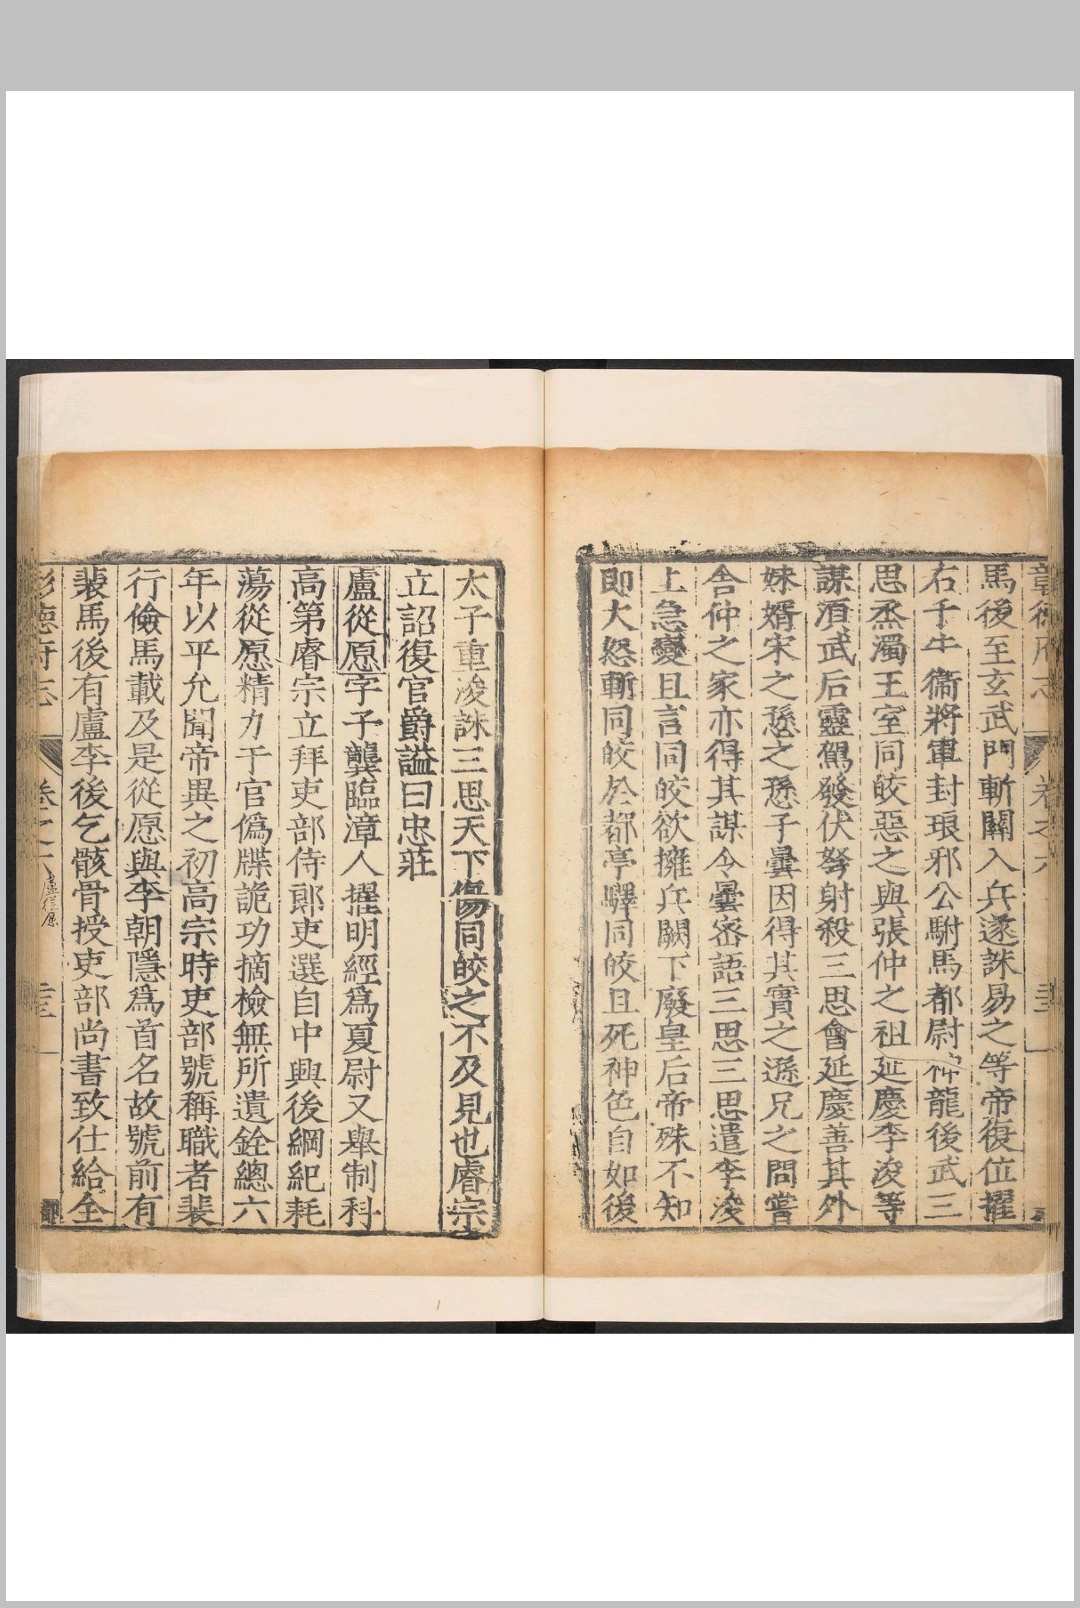 彰德府志 卷之六
馬後至玄武門斬關入兵遂誅易之等帝復位擢
右千牛衞將軍封琅邪公駙馬都尉神龍後武三
思烝濁王室同皎惡之與張仲之祖延慶李浚等
謀須武后靈駕發伏弩射殺三思會延慶善其外
妹婿宋之愻之愻子曇因得其實之遜兄之問嘗
舍仲之家亦得其謀令曇密語三思三思遣李浚
上急變且言同皎欲擁兵闕下廢皇后帝殊不知
即大怒斬同皎於都亭驛同皎且死神色自如後
太子重浚誅三思天下傷同皎之不及見也睿宗
立詔復官爵謚曰忠莊
盧從愿字子龔臨漳人擢明經爲夏尉又舉制科
高第睿宗立拜吏部侍郎吏選自中興後綱紀耗
蕩從愿精力于官僞牒詭功摘檢無所遺銓總六
年以平允聞帝異之初高宗時吏部號稱職者裴
行儉馬載及是從愿與李朝隱爲首名故號前有
裴馬後有盧李後乞骸骨授吏部尚書致仕給全
彰德府志 卷之六 盧從愿